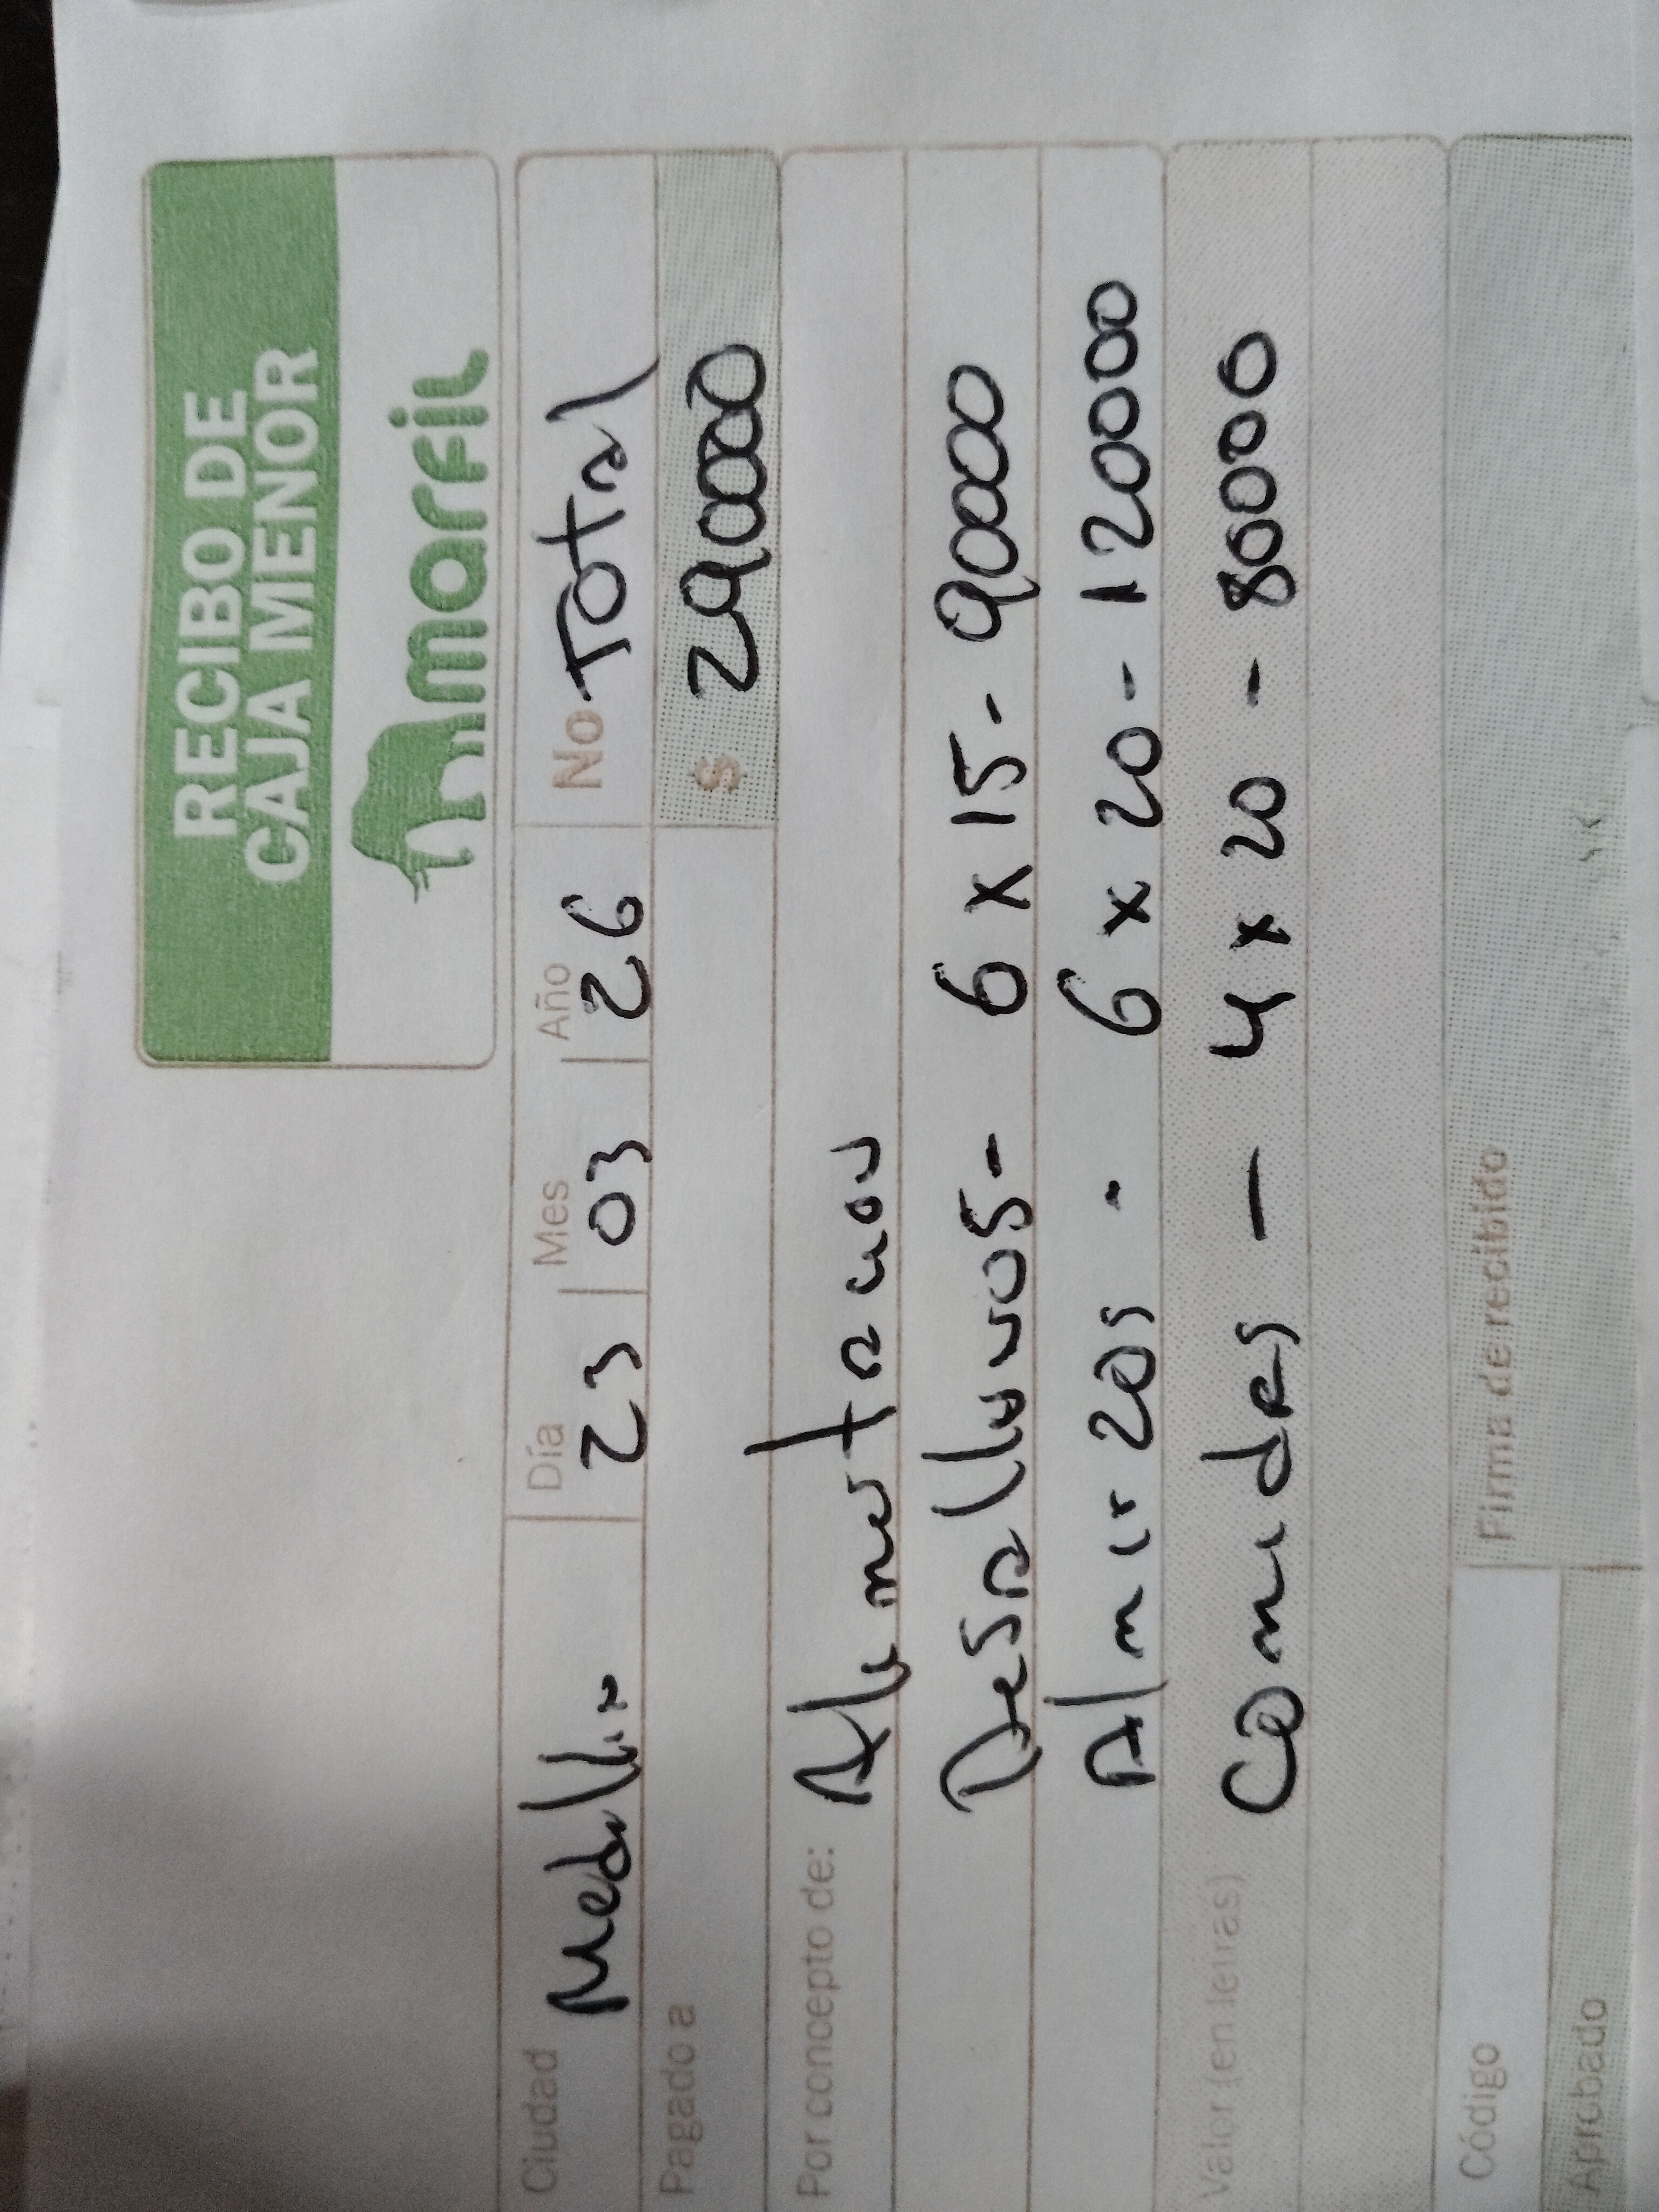 RECIBO DE
CAJA MENOR
marfil
Ciudad Medellin Día 23 Mes 03 Año 26 No Total
Pagado a $ 290000
Por concepto de: Alimentacion
Desallunos - 6 x 15 - 90000
Almuerzos - 6 x 20 - 120000
Valor (en letras) Comidas - 4 x 20 - 80000
Código Firma de recibido
Aprobado